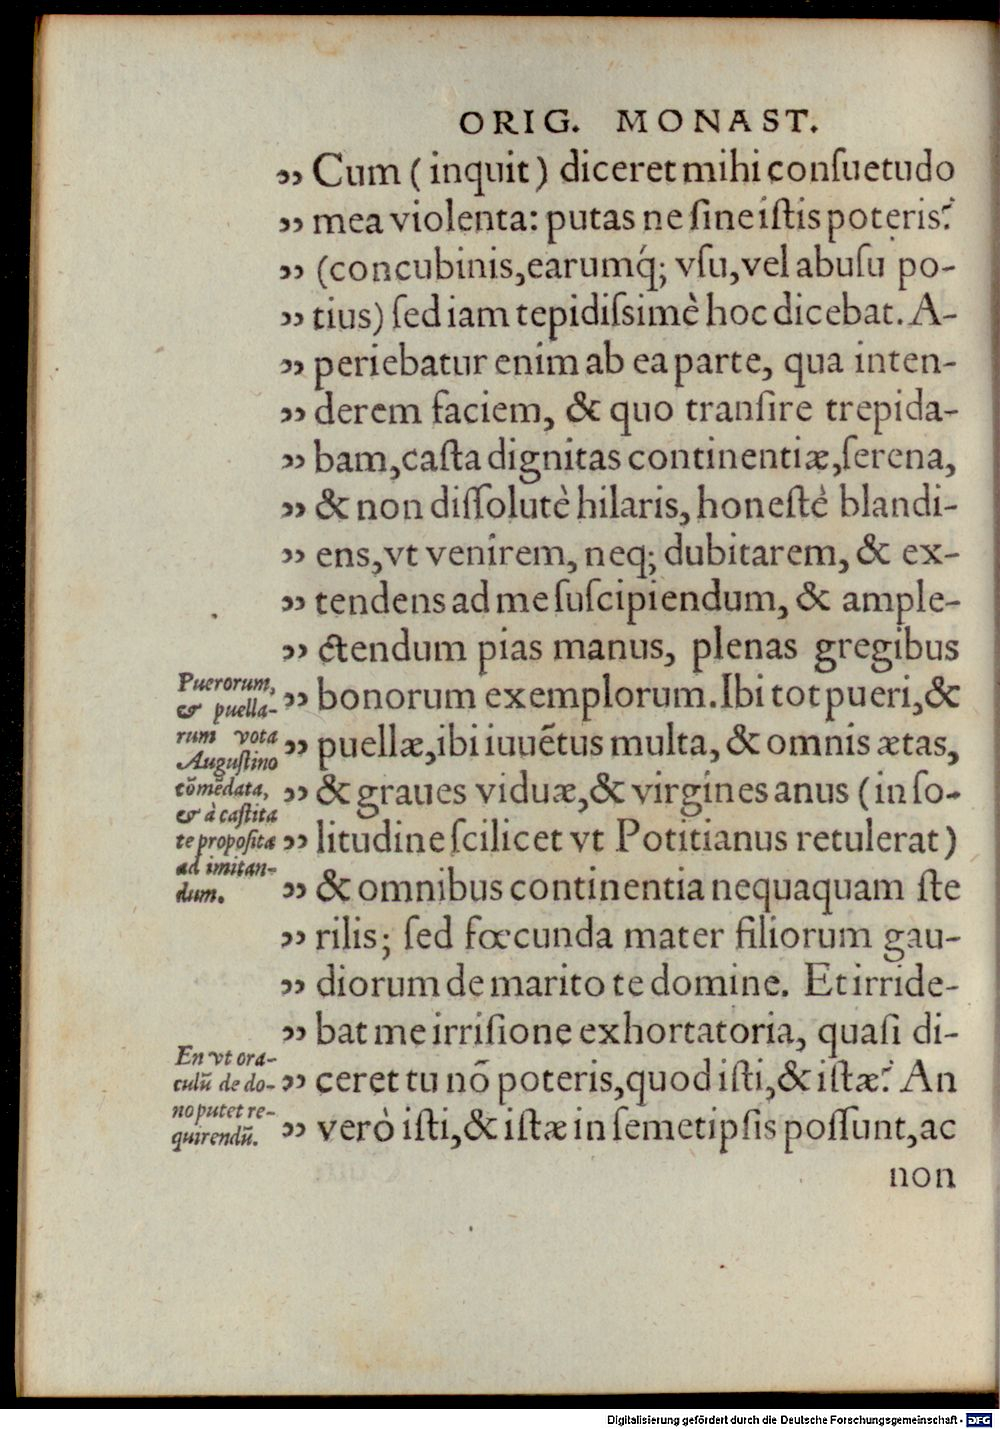 ORIG. MONAST.
„ Cum (inquit) diceret mihi conſuetudo
„ mea violenta: putas ne ſine iſtis poteris?
„ (concubinis, earumq́; vſu, vel abuſu po-
„ tius) ſed iam tepidiſsimè hoc dicebat. A-
„ periebatur enim ab ea parte, qua inten-
„ derem faciem, & quo tranſire trepida-
„ bam, caſta dignitas continentiæ, ſerena,
„ & non diſſolutè hilaris, honeſtè blandi-
„ ens, vt venirem, neq; dubitarem, & ex-
„ tendens ad me ſuſcipiendum, & ample-
„ ctendum pias manus, plenas gregibus
„ bonorum exemplorum. Ibi tot pueri, &
„ puellæ, ibi iuuẽtus multa, & omnis ætas,
„ & graues viduæ, & virgines anus (in ſo-
„ litudine ſcilicet vt Potitianus retulerat)
„ & omnibus continentia nequaquam ſte
„ rilis; ſed fœcunda mater filiorum gau-
„ diorum de marito te domine. Et irride-
„ bat me irriſione exhortatoria, quaſi di-
„ ceret tu nõ poteris, quod iſti, & iſtæ? An
„ verò iſti, & iſtæ in ſemetipſis poſſunt, ac
non
Puerorum,
& puella-
rum vota
Auguſtino
cõmẽdata,
& à caſtita
te propoſita
ad imitan-
dum.
En vt ora-
culũ de do-
no putet re-
quirendũ.
Digitalisierung gefördert durch die Deutsche Forschungsgemeinschaft - DFG